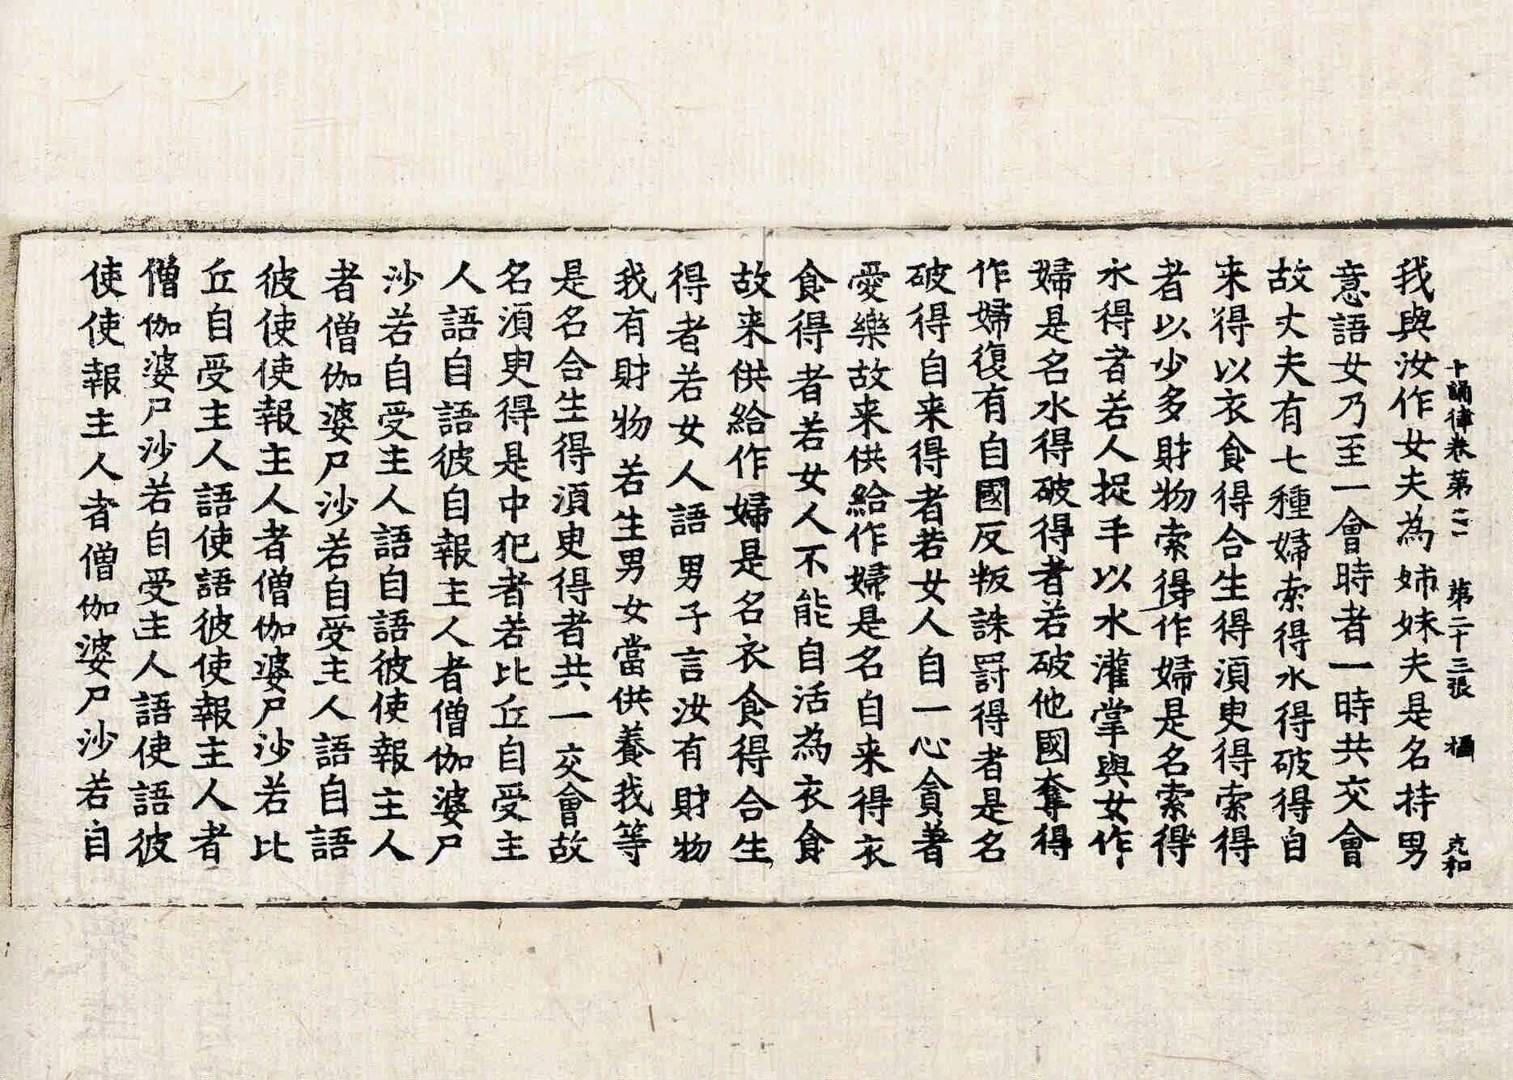 十誦律卷第三　第二十三張　攝　克和
我與汝作女夫為姉妹夫是名持男
意語女乃至一會時者一時共交會
故丈夫有七種婦索得水得破得自
来得以衣食得合生得湏臾得索得
者以少多財物索得作婦是名索得
水得者若人捉手以水灌掌與女作
婦是名水得破得者若破他國奪得
作婦復有自國反叛誅罸得者是名
破得自来得者若女人自一心貪著
愛樂故来供給作婦是名自来得衣
食得者若女人不能自活為衣食
故来供給作婦是名衣食得合生
得者若女人語男子言汝有財物
我有財物若生男女當供養我等
是名合生得湏臾得者共一交會故
名湏臾得是中犯者若比丘自受主
人語自語彼自報主人者僧伽婆尸
沙若自受主人語自語彼使報主人
者僧伽婆尸沙若自受主人語自語
彼使使報主人者僧伽婆尸沙若比
丘自受主人語使語彼使報主人者
僧伽婆尸沙若自受主人語使語彼
使使報主人者僧伽婆尸沙若自